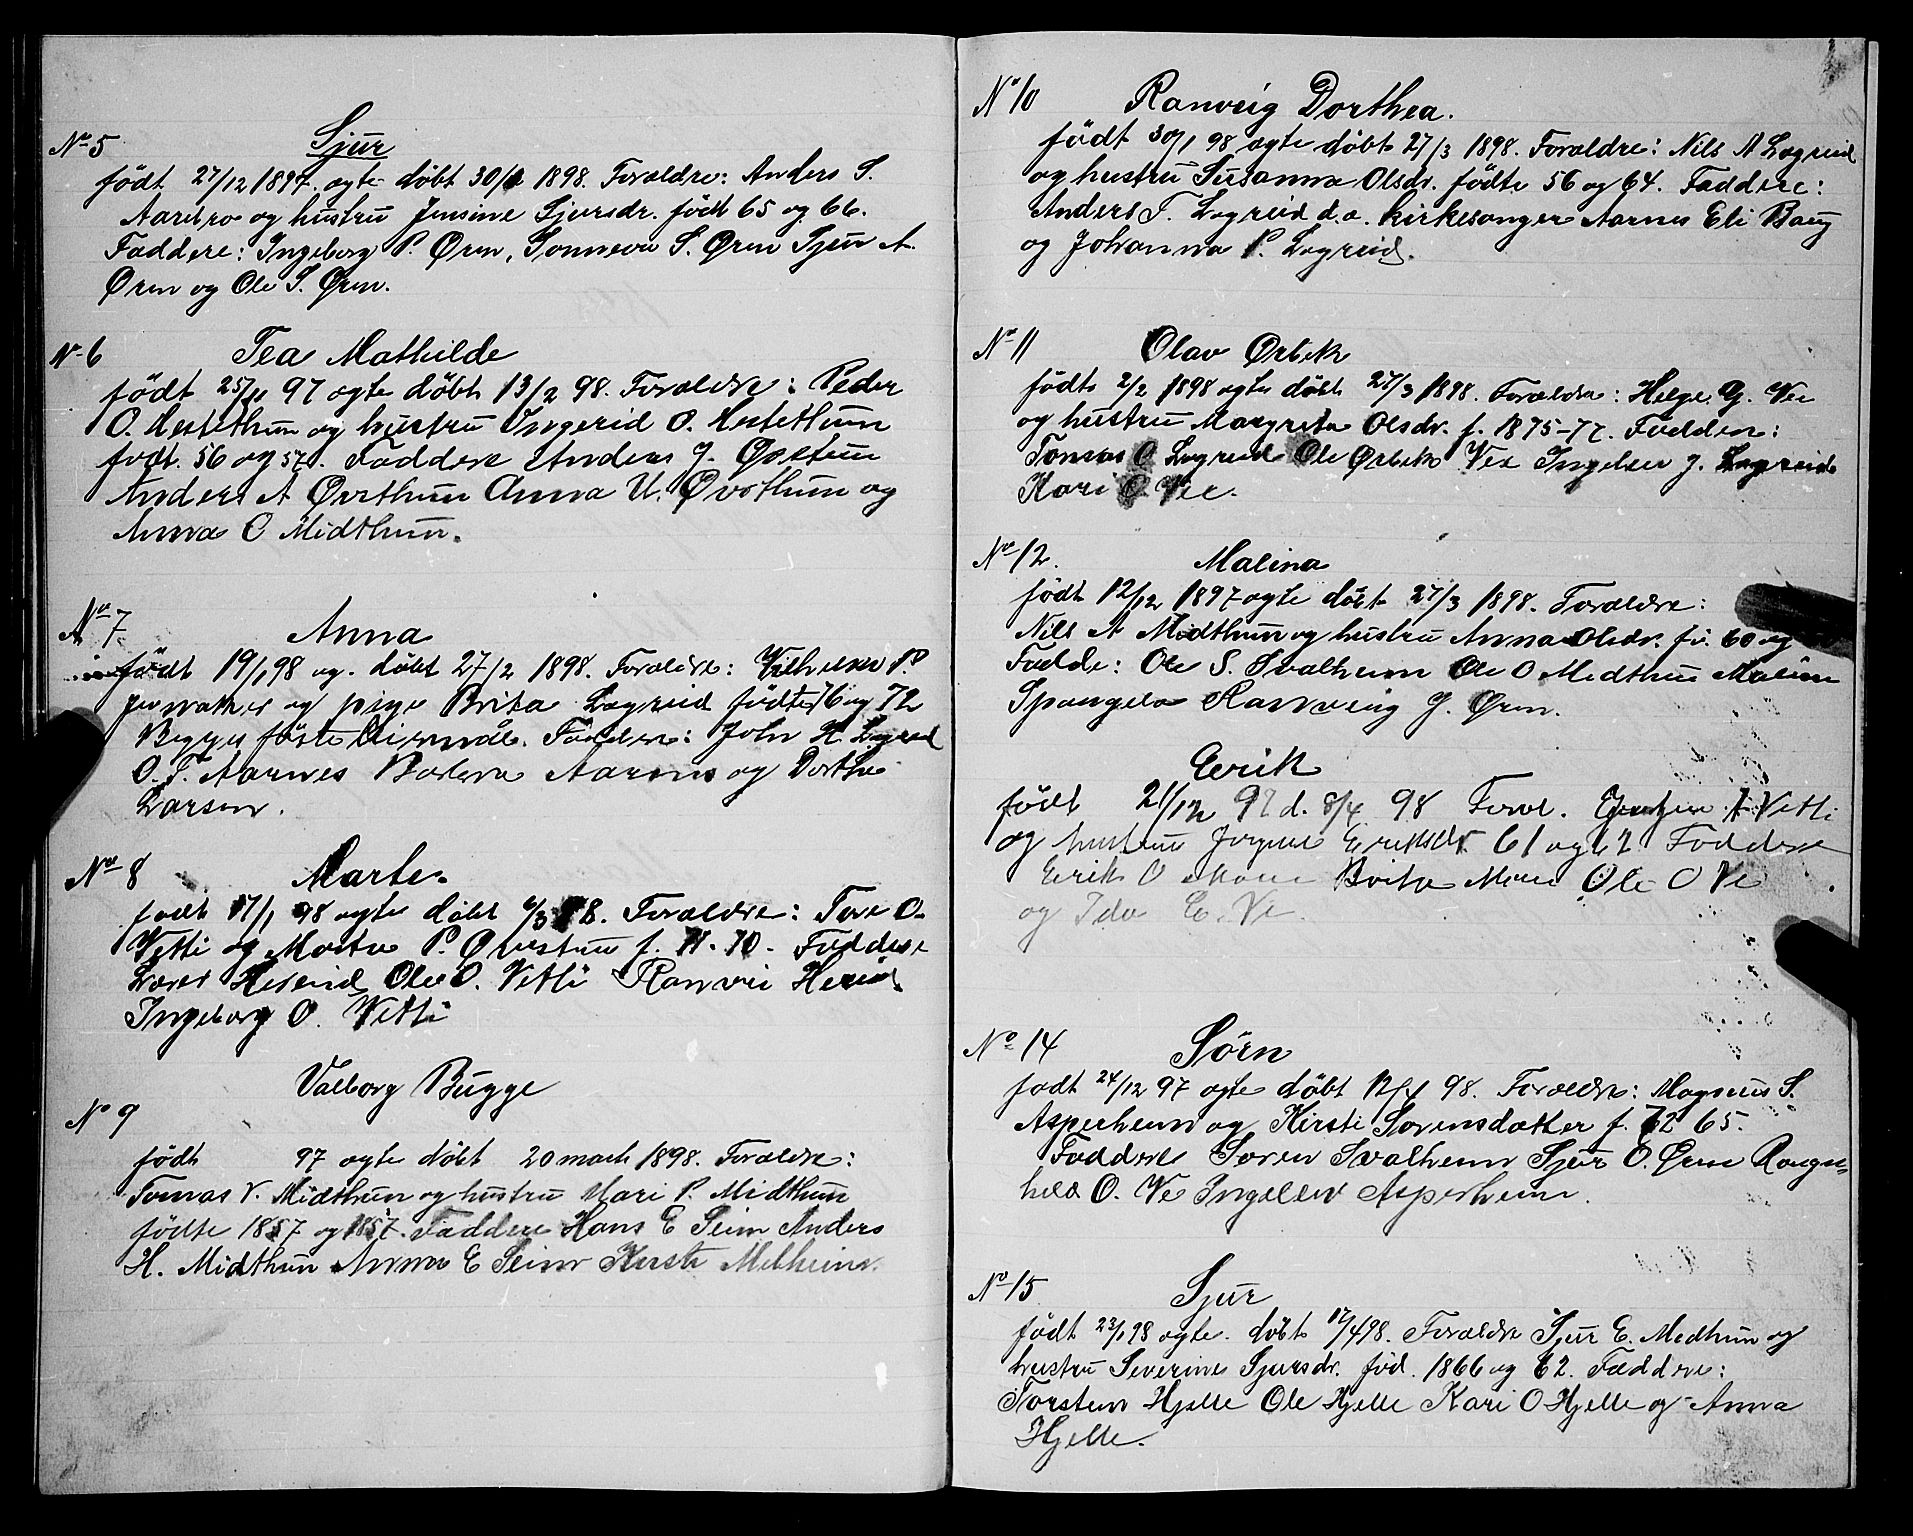 No 5 Sjur
født 27/12 1897 ægte døbt 30/1 1898. Forældre: Anders S.
Aarebro og hustru Jensine Sjursdr. født 65 og 66.
Faddere: Ingeborg P. Øren, Sønneva S. Øren Sjur A.
Øren og Ole S. Øren.
N-6 Tea Mathilde
født 25/11 97 ægte døbt 13/2 98. Forældre: Peder
O. Hestethun og hustru Ingerid O. Hestethun
født. 56 og 57. Faddere Anders J. Øvstun
Anders A Øvsthun Anna U. Øvsthun og
Anna O Midthun.
No 7 Anna
født 19/1 98 og. døbt 27/2 1898. Forældre: Vilhelm P.
og pige Brita Lægreid fødte 76 og 72
Begges første leiermål. Faddere: John H. Lægreid
O. T. Aarnes Barbra Aarnes og Dorthe
Larsen.
No 8 Marte.
født 17/1 98 ægte døbt 6/3 98. Forældre: Tore O.
Vetti og Marta P. Øvestun f. 71-70. Faddere
Lærer Hereid Ole O. Vetti Ranvei Hereid
Ingeborg O. Vetti
Valborg Bugge
No 9
født 97 ægte døbt 20 mach 1898. Forældre:
Tomas V. Midthun og hustru Mari P. Midthun
fødte 1857 og 1857. Faddere Hans E Seim Anders
H. Midthun Anna E Seim Kirsti Melheim.
No 10 Ranveig Dorthea.
født 30/1 98 ægte døbt 27/3 1898. Forældre: Nils A Lægreid
og hustru Susanna Olsdr. fødte 56 og 64. Faddere:
Anders T. Lægreid d.a. kirkesanger Aarnes Eli Baug
og Johanna P. Lægreid.
No 11 Olav Ørbek
født 2/2 1898 ægte døbt 27/3 1898. Forældre: Helge G. Vee
og hustru Margreta Olsdr. f. 1875-77. Faddere:
Tomas O Lægreid Ole Ørbek Vee Ingeleu J. Lægreid
Kari O. Vee.
No 12. Malina
født 12/12 1897 ægte døbt 27/3 1898. Forældre:
Nils A Midthun og hustru Anna Olsdr. fø. 60 og
Fadde: Ole S. Svalheim Ole O Midthun Malene
Spangelo Ranveig J. Øren.
Eerik
født 21/12 97 d. 8/4 98 Foræl. A. Vetti
og hustru Jørgine Eriksdr. 61 og 62 Faddere
Eerik O Moen Brita Moen Ole O Ve
og Ida E. Ve.
No 14 Sørn
født 24/12 97 ægte døbt 12/4 98. Forældre: Magnus S.
Asperheim og Kirsti Sørensdatter f. 72 65.
Faddere Søren Svalheim Sjur O. Øren Rangn-
hild O. Ve Ingeleu Asperheim.
No 15 Sjur
født 23/1 98 ægte. døbt 17/4 98. Forældre Sjur E. Midthun og
hustru Severine Sjursdr. fød. 1866 og 62. Faddere:
Torsten Hjelle Ole Hjelle Kari O Hjelle og Anna
Hjelle.